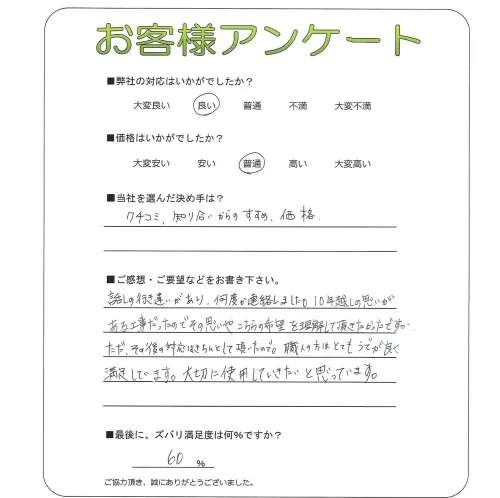 お客様アンケート
■弊社の対応はいかがでしたか？
大変良い 良い 普通 不満 大変不満
■価格はいかがでしたか？
大変安い 安い 普通 高い 大変高い
■当社を選んだ決め手は？
クチコミ、知り合いからのすすめ、価格、
■ご感想・ご要望などをお書き下さい。
話しの行き違いがあり、何度か連絡しました。10年越しの思いが
ある工事だったのでその思いや、こちらの希望を理解して頂きたかったです。
ただ、その後の対応はきちんとして頂いたので。職人の方はとてもうでが良く
満足しています。大切に使用していきたいと思っています。
■最後に、ズバリ満足度は何％ですか？
60 ％
ご協力頂き、誠にありがとうございました。